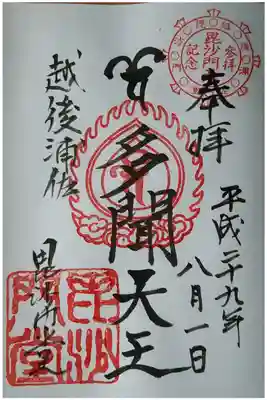 奉拝
平成二十九年
八月一日
多聞天王
越後浦佐
毘沙門堂
毘沙門
参拝
記念
毘沙
門堂